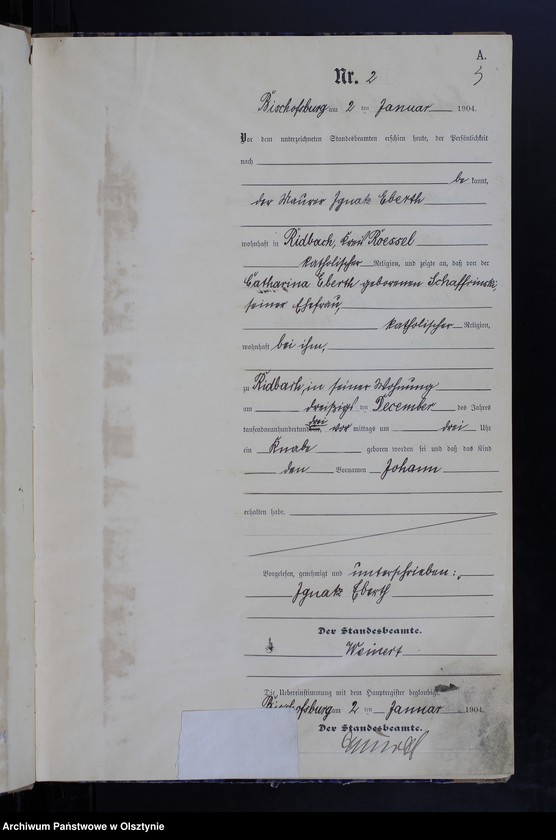 A.
Nr. 2
3
Bischofsburg am 2 ten Januar 1904.
Vor dem unterzeichneten Standesbeamten erschien heute, der Persönlichkeit
nach
be kannt,
der Maurer Ignatz Eberth
wohnhaft in Ridbach, Kreis Roessel
katholischer Religion, und zeigte an, daß von der
Catharina Eberth geborenen Schaffrinski,
seiner Ehefrau,
katholischer Religion,
wohnhaft bei ihm,
zu Ridbach, in seiner Wohnung
am dreißigsten December des Jahres
tausendneunhundertund drei vor mittags um drei Uhr
ein Knabe geboren worden sei und daß das Kind
den Vornamen Johann
erhalten habe.
Vorgelesen, genehmigt und unterschrieben:
Ignatz Eberth
Der Standesbeamte.
Weinert
Die Uebereinstimmung mit dem Hauptregister beglaubigt
Bischofsburg am 2 ten Januar 1904.
Der Standesbeamte.
Archiwum Państwowe w Olsztynie